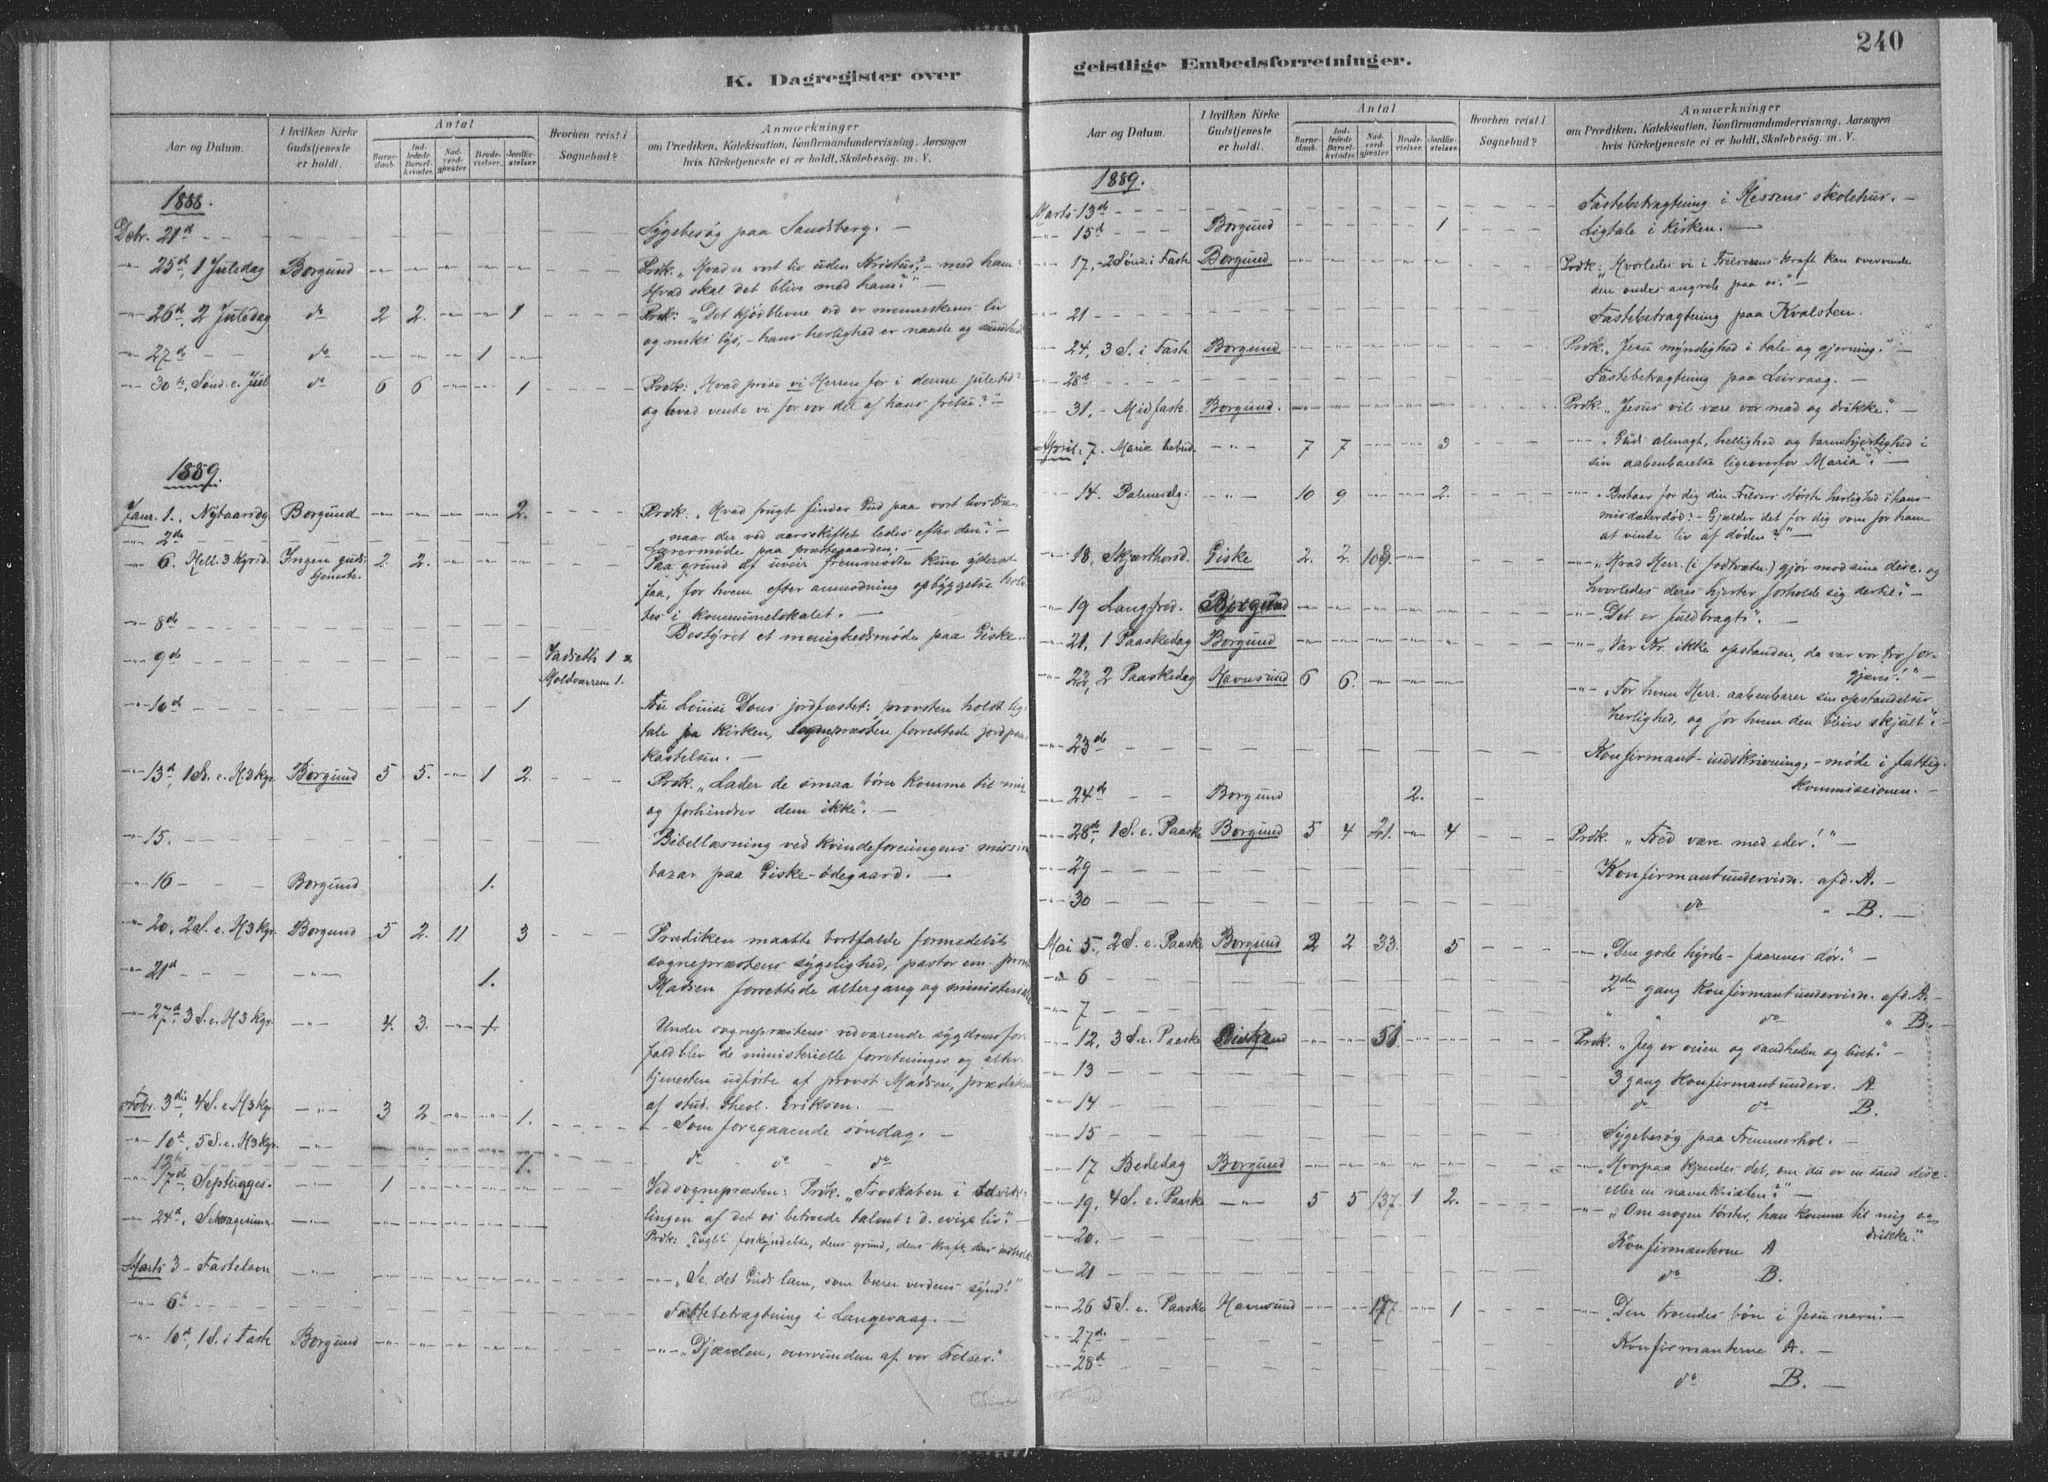 K. Dagregister over
Aar og Datum.
I hvilken Kirke Gudstjeneste er holdt.
Antal
Barnedaab.
Indledede Barselkvinder.
Nadverdgjester
Brudevielser.
Jordfæstelser
Hvorhen reist i Sognebud?
Anmærkninger
om Prædiken, Katekisation, Konfirmandundervisning, Aarsagen
hvis Kirketjeneste ei er holdt, Skolebesøg m. V.
1888.
Debr. 21d Sygebesøg paa Sandsberg.
" 25d, 1 Juledag Borgund Prdk: "Hvad er vort liv uden Kristus? – med ham?
Hvad skal det blive med ham?"
" 26d, 2 Juledag do 2 2. 1 Prdk: "Det kjødblevne ord er menneskenes liv
og lys, – hans herlighed er naade og sandhed
" 27d do 1
" 30te, Sønd. e. Jul do 6 6 1 Prdk: "Hvad prise vi Herren for i denne juletid?
og hvad vente vi for vor del af hans frelse?"
1889.
Janr. 1., Nytaarsdg Borgund 2. Prdk: "Hvad frugt finder Gud paa vort livstræ,
naar der ved aarsskiftet ledes efter den?"
" 2de Lærermøde paa præstegaarden.
" 6. Hell. 3 Kgrsd. Ingen gudstjeneste. 2. 2. Paa grund af uveir fremmødte kun yderst
faa, for hvem efter anmodning opbyggelse holdtes i Kommunelokalet.
" 8de Bestyret et menighedsmøde paa Giske.
" 9de
Moldværren 1.
" 10de 1 Fru Louise Dons jordfæstet: provsten holdt ligtale
fra kirken, sognepræsten forrettede jordpaakastelsen.
" 13d, 1 S. e. H3Kgr. Borgund 5 5. 1 2. Prdk. "Lader de smaa børn komme til mig
og forhindrer dem ikke".
" 15. Bibellæsning ved Kvindeforeningens missions
bazar paa Giske-ødegaard.
" 16 Borgund 1.
" 20, 2 S. e. H3Kgr. Borgund 5 2. 11 3 Prædiken maatte bortfalde formedelst
sognepræstens sygelighed, pastor em.
" 21d " 1. Madsen forrettede altergang og
" 27d, 3 S. e. H3Kgr. " 4. 3. Under sognepræstens vedvarende sygdomsforfald
blev de ministerielle forretninger og altertjenesten
udførte af provst Madsen, prædiken
Febr. 3die, 4 S. e. H3Kgr. " 3 2 1. af stud. theol. Eriksen.
Som foregaaende søndag.
" 10d, 5 S. e. H3Kgr. " do " do " do
13de 1.
" 17d, Septuages. " 1 Ved sognepræsten: Prdk. "Troskaben i udviklingen
af det os betroede talent: d. evige liv".
" 24d, Seksagesima " Prdk: forkyndelse, dens grund, dens kraft, dens
Marts 3 – Fastelavn " "Se det Guds lam, som bærer verdens synd!"
" 6te Fastebetragtning i Langevaag.
" 10d, 1 S. i Faste Borgund " "Djævelen, overvunden af vor Frelser."
240
geistlige Embedsforretninger.
Aar og Datum.
I hvilken Kirke Gudstjeneste er holdt.
Antal
Barnedaab.
Indledede Barselkvinder.
Nadverdgjester
Brudevielser.
Jordfæstelser
Hvorhen reist i Sognebud?
Anmærkninger
om Prædiken, Katekisation, Konfirmandundervisning, Aarsagen
hvis Kirketjeneste ei er holdt, Skolebesøg m. V.
1889.
Marts 13de Fastebetragtning i Hessens skolehus.
" 15d Borgund 1 Ligtale i kirken.
17, 2 Sønd. i Faste Borgund Prdk: "Hvorledes vi i Frelserens kraft kan overvinde
den ondes angreb paa os."
" 21 Fastebetragtning paa Kvalsten.
" 24, 3 S. i Faste Borgund Prdk. "Jesu myndighed i tale og gjerning."
" 28d Fastebetragtning paa Leirvaag.
" 31, – Midfaste Borgund. Prdk. "Jesus vil være vor mad og drikke."
April: 7. Mariæ bebud. " 7 7 3 " "Guds almagt, hellighed og barmhjertighed i
sin aabenbarelse ligeoverfor Maria".
" 14. Palmesøg. " 10 9 2. " "Bestaar for dig din Frelsers største herlighed i hans
misdæderdød? – Gjælder det for dig som for ham
at vinde liv af døden?"
" 18, Skjærthorsd. Giske 2. 2. 108. " "Hvad Herr. (i fodtvætn.) gjør mod sine disc. og
hvorledes deres hjerter forholde sig dertil."
" 19 Langfred. Borgund " "Det er fuldbragt".
" 21, 1 Paaskedag Borgund " "Var Kr. ikke opstanden, da var vor tro forgjæves."
" 22, 2 Paaskedag Havnsund 6 6. " "For hvem Herr. aabenbarer sin opstandelses
herlighed, og for hvem den bliver skjult".
" 23de Konfirmant-indskrivning, – møde i fattigkommissionen.
" 24de Borgund 2.
" 28de, 1 S. e. Paaske Borgund 5 4 21. 4 Prdk. "Fred være med eder!"
" 29 Konfirmantundervisn. afd. A.
" 30 do " B.
Mai 5., 2 S. e. Paaske Borgund 2 2 33. 5 " "Den gode hyrde – faarenes dør."
" 6 2den gang Konfirmantundervisn. afd. A.
" 7 " " do " B.
" 12, 3 S. e. Paaske 58 Prdk. "Jeg er veien og sandheden og livet."
" 13 3 gang Konfirmantunderv. A
" 14 do do B.
" 15 Sygebesøg paa Fremmerhol.
" 17 Bededag Borgund "Hvorpaa kjendes det, om du er en sand disc.
eller en navnkristen?"
" 19, 4 S. e. Paaske " 5 5 137. 1 2. " "Om nogen tørster, han komme til mig og
drikke."
" 20. Konfirmanterne A
" 21 do B.
" 26 5 S. e. Paaske Havnsund 177 1 " "Den troendes bøn i Jesu navn".
" 27de Konfirmanterne A.
" 28d do B.